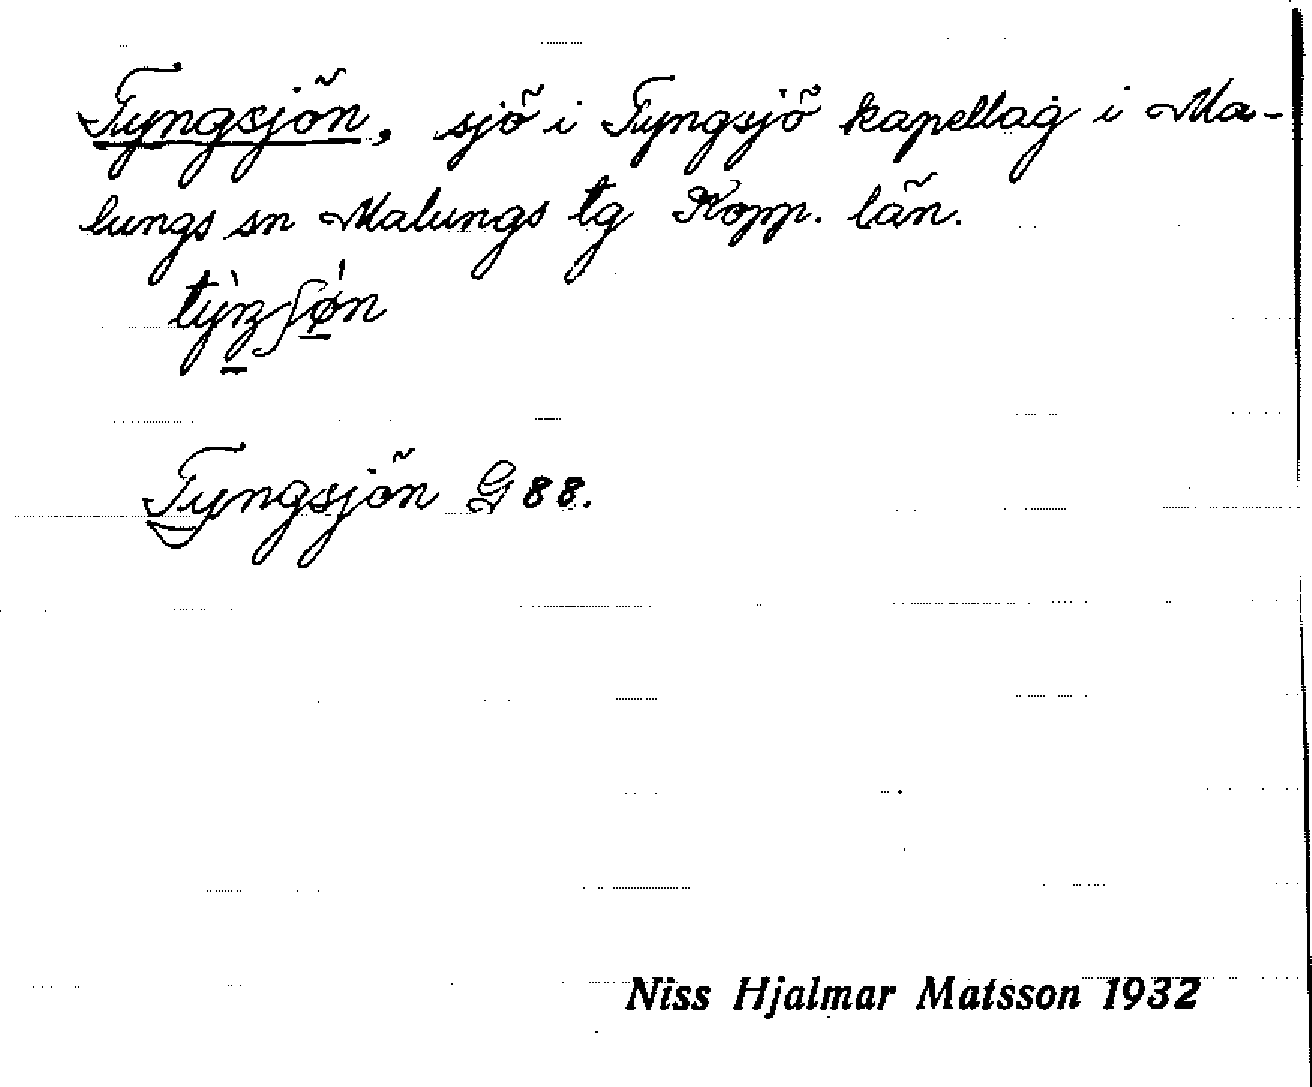 Tyngsjön, sjö i Tyngsjö kapellag i Ma-
lungs sn Malungs tg Kopp. län.
Tyngsjön G 88.
Niss Hjalmar Matsson 1932